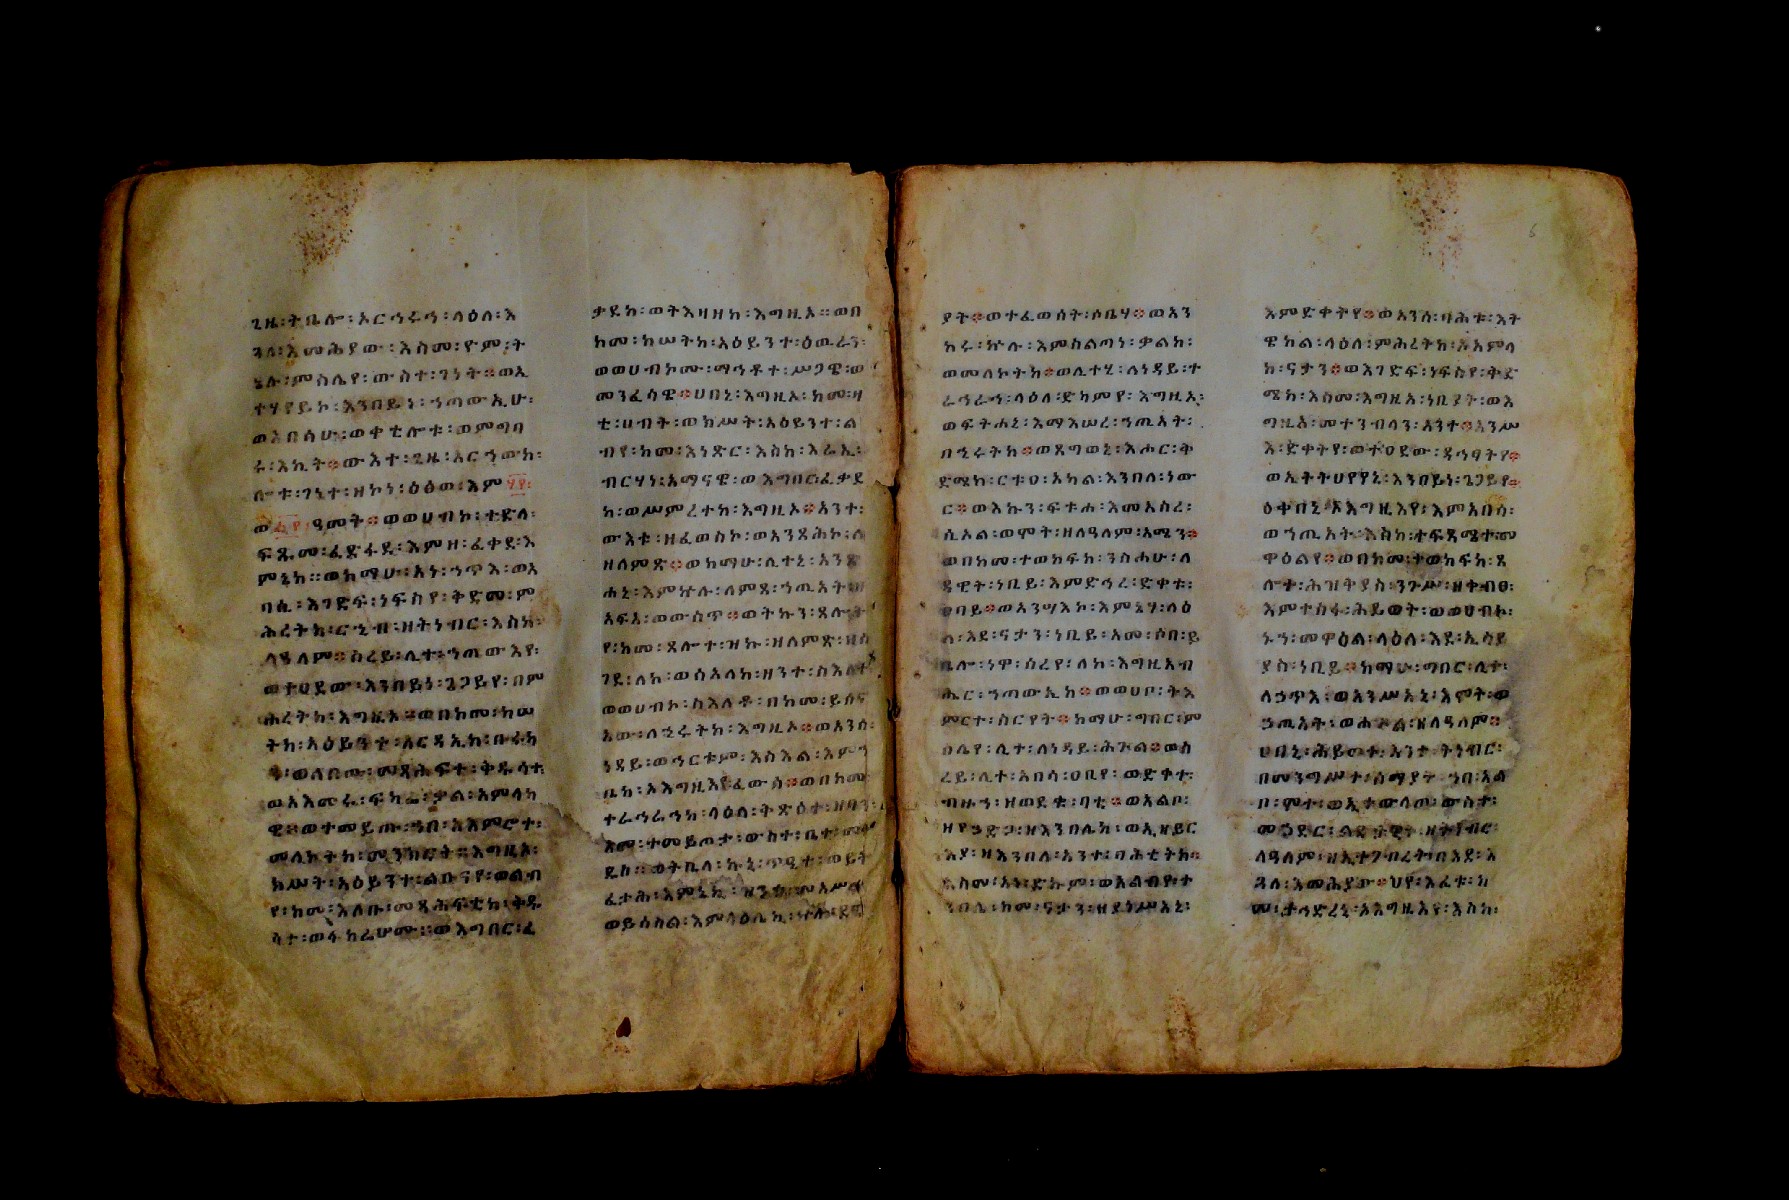 ጊዜ፡ትቤሎ፡አርኅሩኅ፡ላዕለ፡እ
ጓለ፡እመሕያው፡እስመ፡ዮም፡ት
ሄሉ፡ምስሌየ፡ውስተ፡ገነት። ወኢ
ተሃየይኮ፡እንበይነ፡ኀጣውኢሁ፡
ወአበሳሁ፡ወቀቲሎቱ፡ወምግባ
ሩ፡እኪት። ውእተ፡ጊዜ፡አርኀውከ፡
ሎቱ፡ገነተ፡ዘኮነ፡ዕፅወ፡እም
ዓመት። ወወሀብኮ፡ተድላ፡
ምኔከ። ወከማሁ፡አነ፡ኀጥእ፡ወአ
ባሲ፡እገድፍ፡ነፍስየ፡ቅድመ፡ም
ሕረትከ፡ርኁብ፡ዘትነብር፡እስከ፡
ለዓለም። ስረይ፡ሊተ፡ኀጣውእየ፡
ወተዐደው፡እንበይነ፡ጌጋይየ፡በም
ሕረትከ፡እግዚኦ። ወበከመ፡ከሠ
ትከ፡አዕይንተ፡አርዳኢከ፡
ወአእመሩ፡ፍካሬ፡ቃል፡አምላካ
ዊ። ወተመይጡ፡ኀበ፡አእምሮተ፡
መለኮትከ፡ እግዚኦ፡
ክሥት፡አዕይንተ፡ልቡናየ፡ወልብ
የ፡ከመ፡እለቡ፡መጻሕፍቲከ፡ቅዱ
ሳተ፡ወፋካሬሆሙ። ወእግበር፡ፈ
ቃደከ፡ወትእዛዘከ፡እግዚኦ። ወበ
ከመ፡ከሠትከ፡አዕይንተ፡ዕዉራን፡
ወወሀብኮሙ፡ማኅቶተ፡ሥጋዊ፡ወ
መንፈሳዊ። ሀበኒ፡እግዚኦ፡ከመ፡
ቲ፡ሀብት፡ወክሥት፡አዕይንተ፡ል
ብየ፡ከመ፡እነጽር፡እስከ፡እሬኢ፡
ብርሃነ፡አማናዊ፡ወእግበር፡ፈቃደ
ከ፡ወሥምረተከ፡እግዚኦ። አንተ፡
ውእቱ፡ዘፈወስኮ፡ወአንጻሕኮ፡ለ
ዘለምጽ። ወከማሁ፡ሊተኒ፡አንጽ
ሐኒ፡እምኵሉ፡ለምጸ፡ኀጢአት
አፍአ፡ወውስጥ። ወትኩን፡ጸሎት
የ፡ከመ፡ጸሎተ፡ዝኩ፡ዘለምጽ፡ዘሰ
ገደ፡ለከ፡ወሰአለከ፡ዘንተ፡ስእለተ
ወወሀብኮ፡ስእለቶ፡በከመ፡ይሰና
አው፡ለኂሩትከ፡እግዚኦ። ወአንሰ፡
ነዳይ፡ወኅርቱም፡እስእል፡እም
ኔከ፡ኦእግዚእየ፡ፈውሰ። ወበከመ
ተራኅራኅከ፡ላዕለ፡ትጽዕተ፡ዘባን፡
አመ፡ተመይጦታ፡ውስተ፡ቤተ፡
ፈታሕ፡እምኔከ፡
ወይሰስል፡እምላዕሌኪ፡
ያት። ወተፈወሰት፡ሶቤሃ። ወአን
ከሩ፡ኵሉ፡እምስልጣነ፡ቃልከ፡
ወመለኮትከ። ወሊተሂ፡ለነዳይ፡ተ
ራኅራኅ፡ላዕለ፡ድካምየ፡እግዚኦ፡
ወፍትሐኒ፡እማእሠረ፡ኀጢአት፡
በኂሩትከ። ወጸግወኒ፡እሖር፡ቅ
ድሜከ፡ርቱዐ፡አካል፡እንበለ፡ነው
ር። ወእኩን፡ፍቱሐ፡እመአስረ፡
ሲኦል፡ወሞት፡ዘለዓለም፡አሜን።
ወበከመ፡ተወከፍከ፡ንስሐሁ፡ለ
ዳዊት፡ነቢይ፡እምድኅረ፡ድቀቱ፡
ዐባይ። ወአንሣእኮ፡እምኔሃ፡ላዕ
ለ፡እደ፡ናታን፡ነቢይ፡አመ፡ሶበ፡ይ
ቤሎ፡ነዋ፡ሰረየ፡ለከ፡እግዚአብ
ሔር፡ኀጣውኢከ። ወወሀቦ፡ትእ
ምርተ፡ስርየት። ከማሁ፡ግበር፡ም
ስሌየ፡ሊተ፡ለነዳይ፡ሕጉል። ወስ
ረይ፡ሊተ፡አበሳ፡ዐቢየ፡ወድቀተ፡
ብዙኀ፡ዘወደቁ፡ባቲ። ወአልቦ፡
ዘየኃድጋ፡ዘእንበሌከ፡ወኢዘይር
እያ፡ዘእንበለ፡አንተ፡ባሕቲትከ።
እስመ፡አነ፡ድኩም፡ወአልብየ፡ተ
ስፋ፡ ከመ፡ናታን፡ዘያነሥአኒ፡
እምድቀትየ። ወአንሰ፡ባሕቱ፡እት
ዌከል፡ላዕለ፡ምሕረትከ፡ኦአምላ
ከ፡ናታን። ወእገድፍ፡ነፍስየ፡ቅድ
ሜከ፡እስመ፡እግዚአ፡ነቢያት፡ወእ
ግዚአ፡መተንብላን፡አንተ። አንሥ
እ፡ድቀትየ፡ወተዐደው፡ዳኅፃትየ።
ወኢትትሀየየኒ፡እንበይነ፡ጌጋይየ።
ዕቀበኒ፡ኦእግዚእየ፡እምአበሳ፡
ወኀጢአት፡እስከ፡ተፍጻሜተ፡መ
ዋዕልየ። ወበከመ፡ተወከፍከ፡ጸ
ሎተ፡ሕዝቅያስ፡ንጉሥ፡ዘቀብፀ፡
እምተስፋ፡ሕይወት፡ወወሀብኮ፡
ኑኀ፡መዋዕል፡ላዕለ፡እደ፡ኢሳይ
ያስ፡ነቢይ። ከማሁ፡ግበር፡ሊተ፡
ለኃጥእ፡ወአንሥአኒ፡እሞት፡ወ
ኃጢአት፡ ዘለዓለም።
ሀበኒ፡ሕይወተ፡እንተ፡ትነብር፡
በመንግሥተ፡ሰማያት፡ኀበ፡አል
ቦ፡ሞተ፡ወኢተውላጠ፡ውስተ፡
ለዓለም፡ዘኢተገብረት፡በእደ፡እ
ጓለ፡እመሕያው። ህየ፡